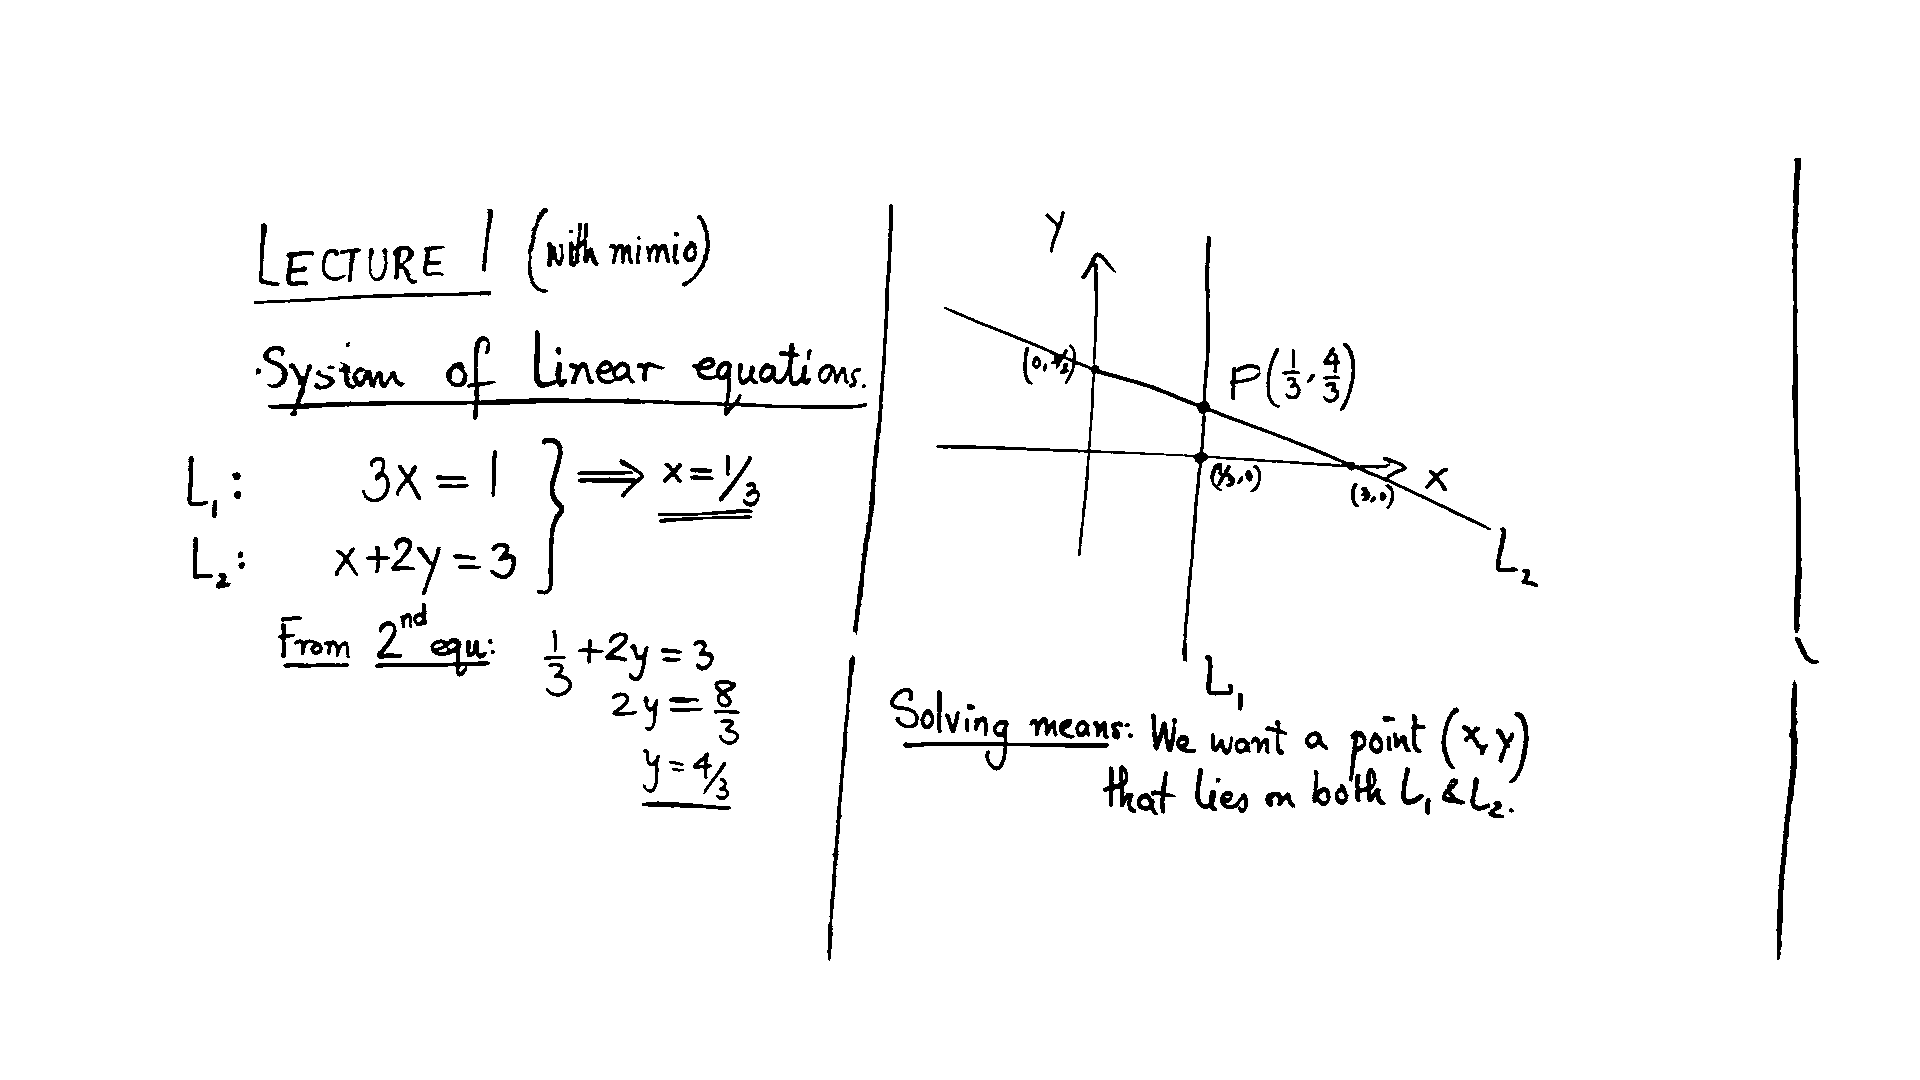 LECTURE 1 (with mimio)
System of Linear equations.
L₁: 3x = 1 } ⟹ x = 1/3
L₂: x+2y = 3
From 2nd equ: 1/3 + 2y = 3
2y = 8/3
y = 4/3
y
P(1/3, 4/3)
(1/3, 0)
(3, 0)
x
L₂
L₁
Solving means: We want a point (x, y)
that lies on both L₁ & L₂.